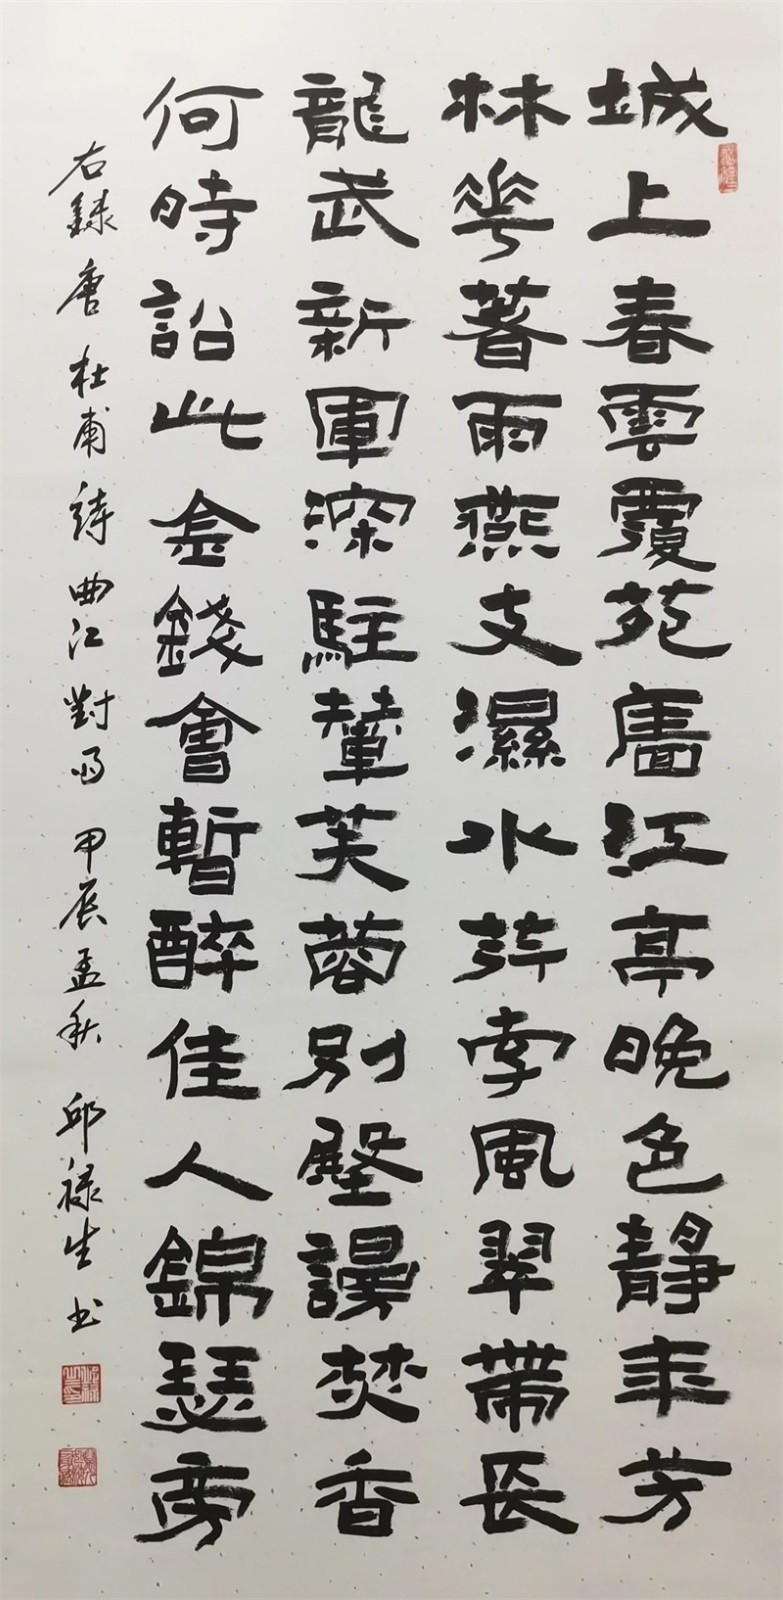 城上春雲覆苑廧江亭晚色靜年芳
林花著雨燕支濕水荇牽風翠帶長
龍武新軍深駐輦芙蓉別殿謾焚香
何時詔此金錢會暫醉佳人錦瑟旁
右録唐杜甫詩曲江對雨 甲辰孟秋 邱禄生书